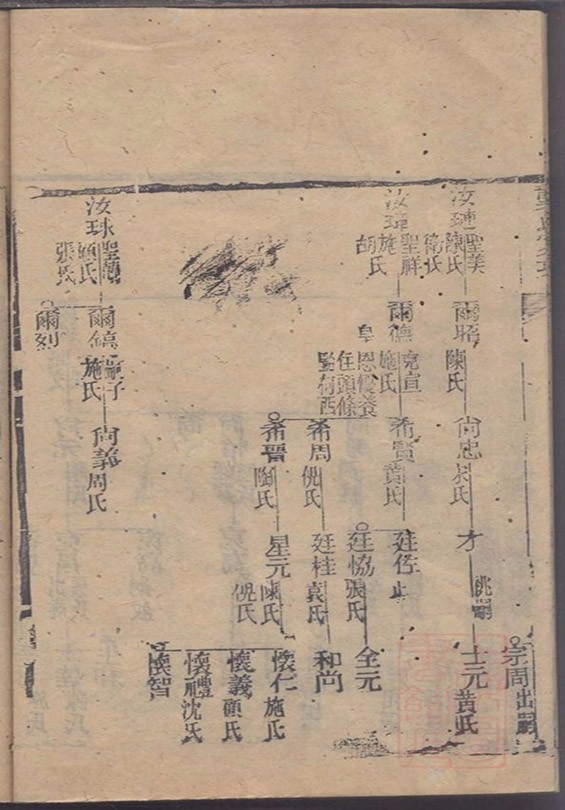 汝璉
聖美
陳氏
衛氏
爾昭
陳氏
尚忠
氏
才
祧嗣
宗周出嗣
士元
黃氏
汝瑋
聖祥
施氏
胡氏
爾德
克宣
施氏
皇恩優養
在頭條
監橋西
希賢
黃氏
廷佐
廷協
張氏
全元
希周
倪氏
廷桂
袁氏
和尚
希晉
陶氏
星元
陳氏
倪氏
懷仁
施氏
懷義
顧氏
懷禮
沈氏
懷智
汝球
聖
顧氏
張氏
爾鎬
施氏
爾烈
尚義
周氏